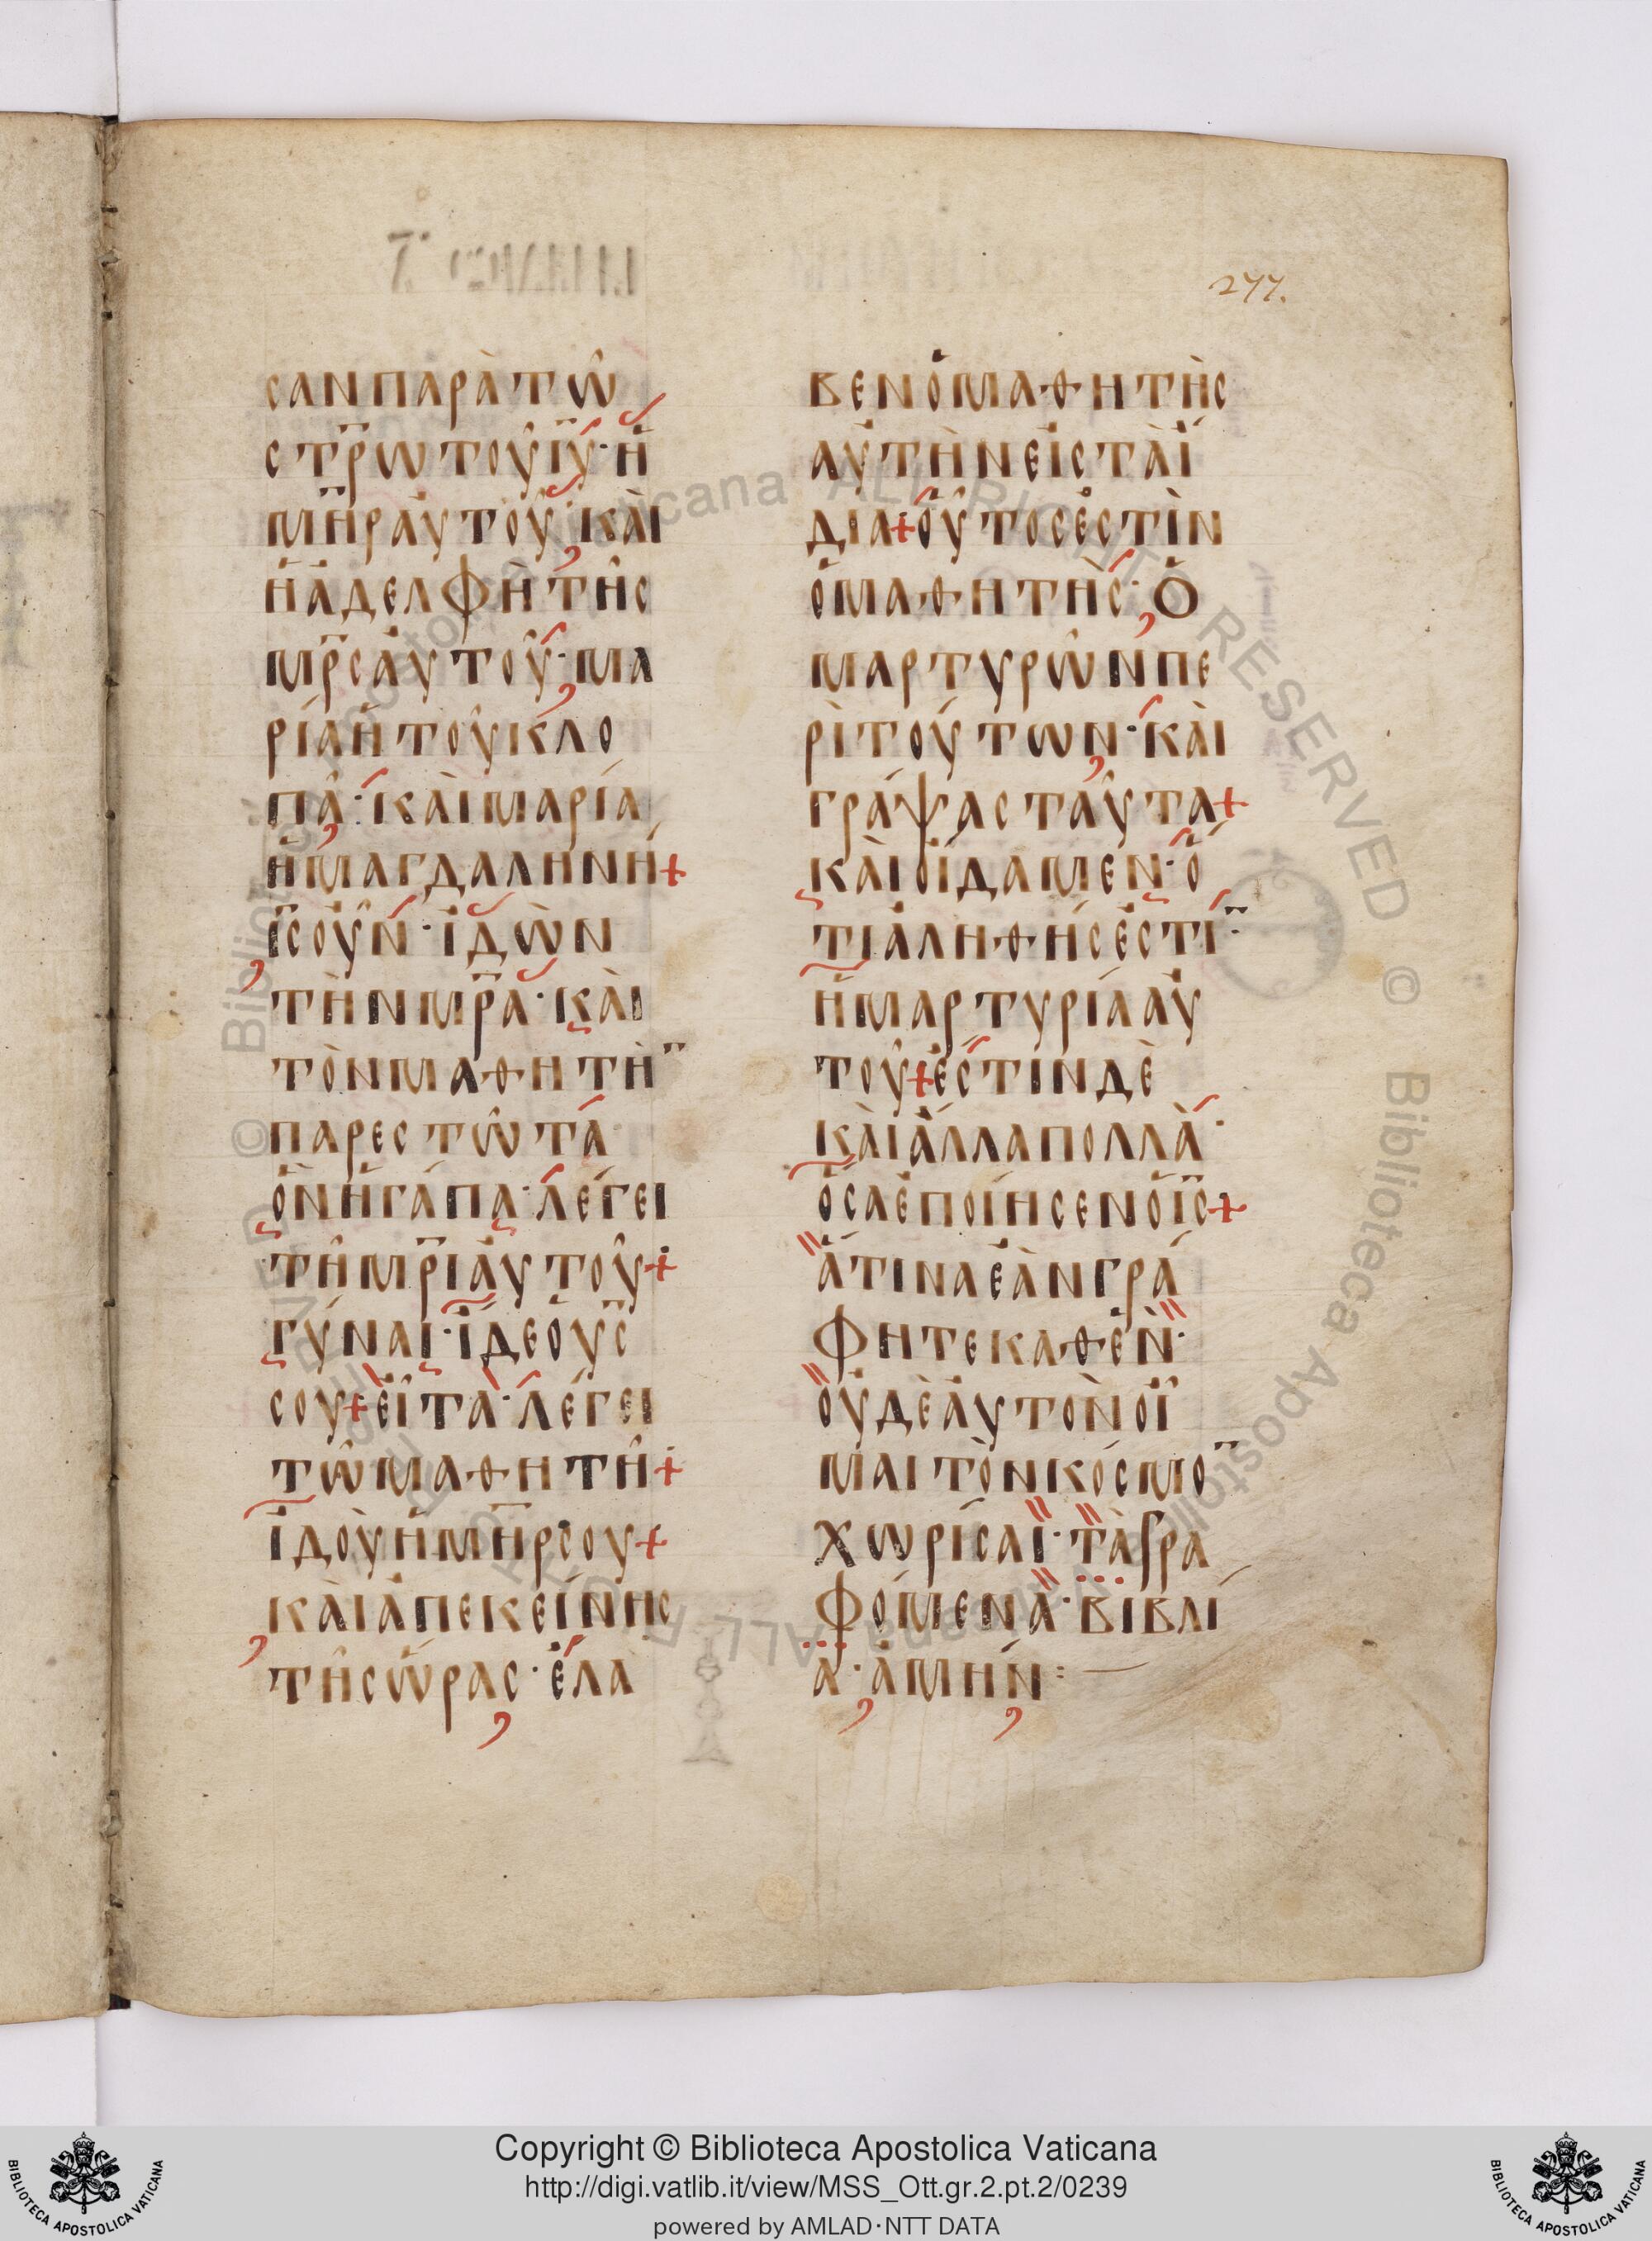 277.
σαν παρὰ τῶ
στρ̅ω τοῦ ἰυ̅· ἡ
μη̅ρ ἀυτοῦ· κὰι
ἡ ἀδελφὴ τῆς
μρ̅ς ἀυτοῦ· μα
ρία ἡ τοῦ κλο
πᾶ· κὰι μαρία
ἡ μαγδαληνή+
ἰς̅ οὖν· ἰδὼν
τὴν μρ̅α· κὰι
τὸν μαθητὴ̅
παρεστῶτα·
ὃν ἠγάπα· λέγει
τῆ μρ̅ι ἀυτοῦ+
γύναι· ἴδε ὁ υς̅
σου+ εἶτα· λέγει
τῶ μαθητῆ+
ἰδοὺ ἡ μη̅ρ σου+
κὰι ἀπ εκείνης
τῆς ὥρας· ἔλα
βεν ὁ μαθητὴς
ἀυτὴν εἰς τὰ ἴ
δια+ οὗτος ἐστὶν
ὁ μαθητής· ὁ
μαρτυρῶν πε
ρὶ τούτων· κὰι
γράψας ταῦτα+
κὰι οἴδαμεν· ὅ
τι ἀληθής ἐστι̅·
ἡ μαρτυρία ἀυ
τοῦ+ ἐστιν δὲ
κὰι ἄλλα πολλὰ·
ὅσα ἐποίησεν ὁ ἰς̅+
ἅτινα ἐὰν γρά
φητε καθ ἕν·
ὀυδὲ ἀυτὸν οἶ
μαι τὸν κόσμο̅
χωρίσαι· τὰ γρα
φόμενα· βιβλί
α· ἀμήν:
Copyright © Biblioteca Apostolica Vaticana
http://digi.vatlib.it/view/MSS_Ott.gr.2.pt.2/0239
powered by AMLAD·NTT DATA
BIBLIOTECA APOSTOLICA VATICANA
BIBLIOTECA APOSTOLICA VATICANA